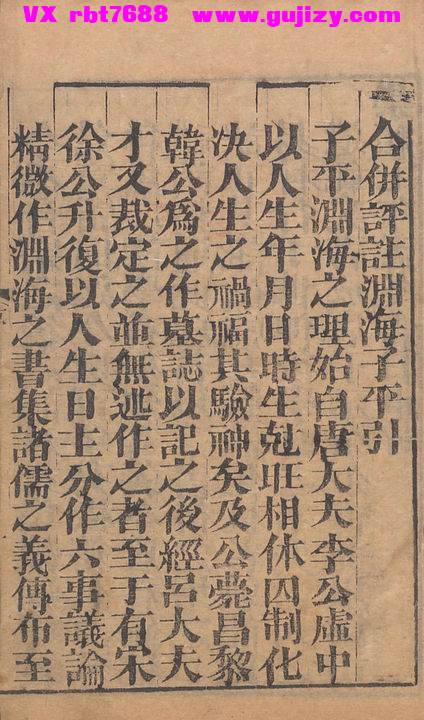 VX rbt7688 www.gujizy.com
合併評註淵海子平引
子平淵海之理始自唐大夫李公虛中
以人生年月日時生尅旺相休囚制化
決人生之禍福其驗神矣及公薨昌黎
韓公爲之作墓誌以記之後經呂大夫
才又裁定之並無述作之者至于有宋
徐公升復以人生日主分作六事議論
精微作淵海之書集諸儒之義傳布至